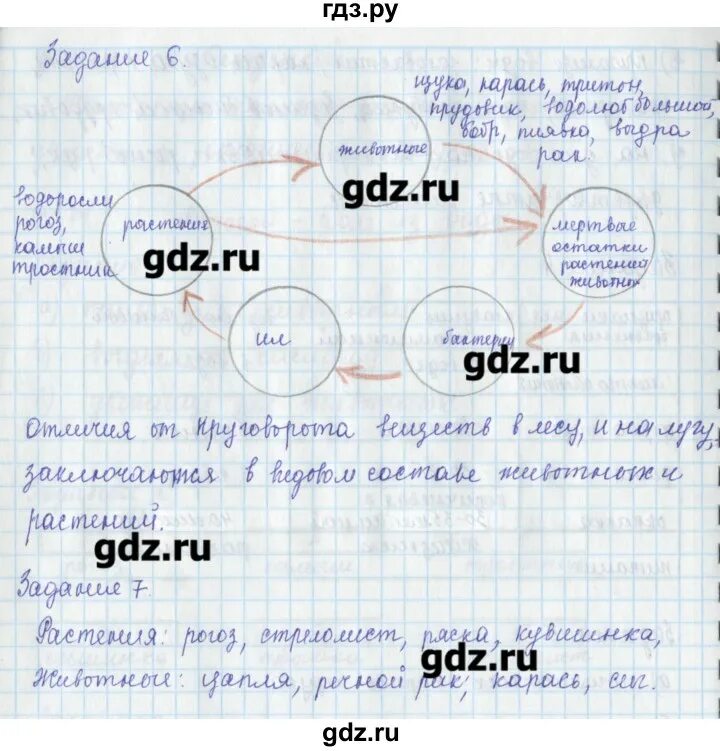 гдз.ру
Задание 6.
щука, карась, тритон,
прудовик, водолюб большой,
бобр, пиявка, выдра
рак.
животные
gdz.ru
водоросли
рогоз,
камыш
тростник.
растения
gdz.ru
мертвые
остатки
растений
животных
ил
бактерии
gdz.ru
Отличия от круговорота веществ в лесу, и на лугу,
заключаются в видовом составе животных и
растений.
gdz.ru
Задание 7.
Растения: рогоз, стрелолист, ряска, кувшинка,
gdz.ru
Животные: цапля, речной рак, карась, сиг.
gdz.ru